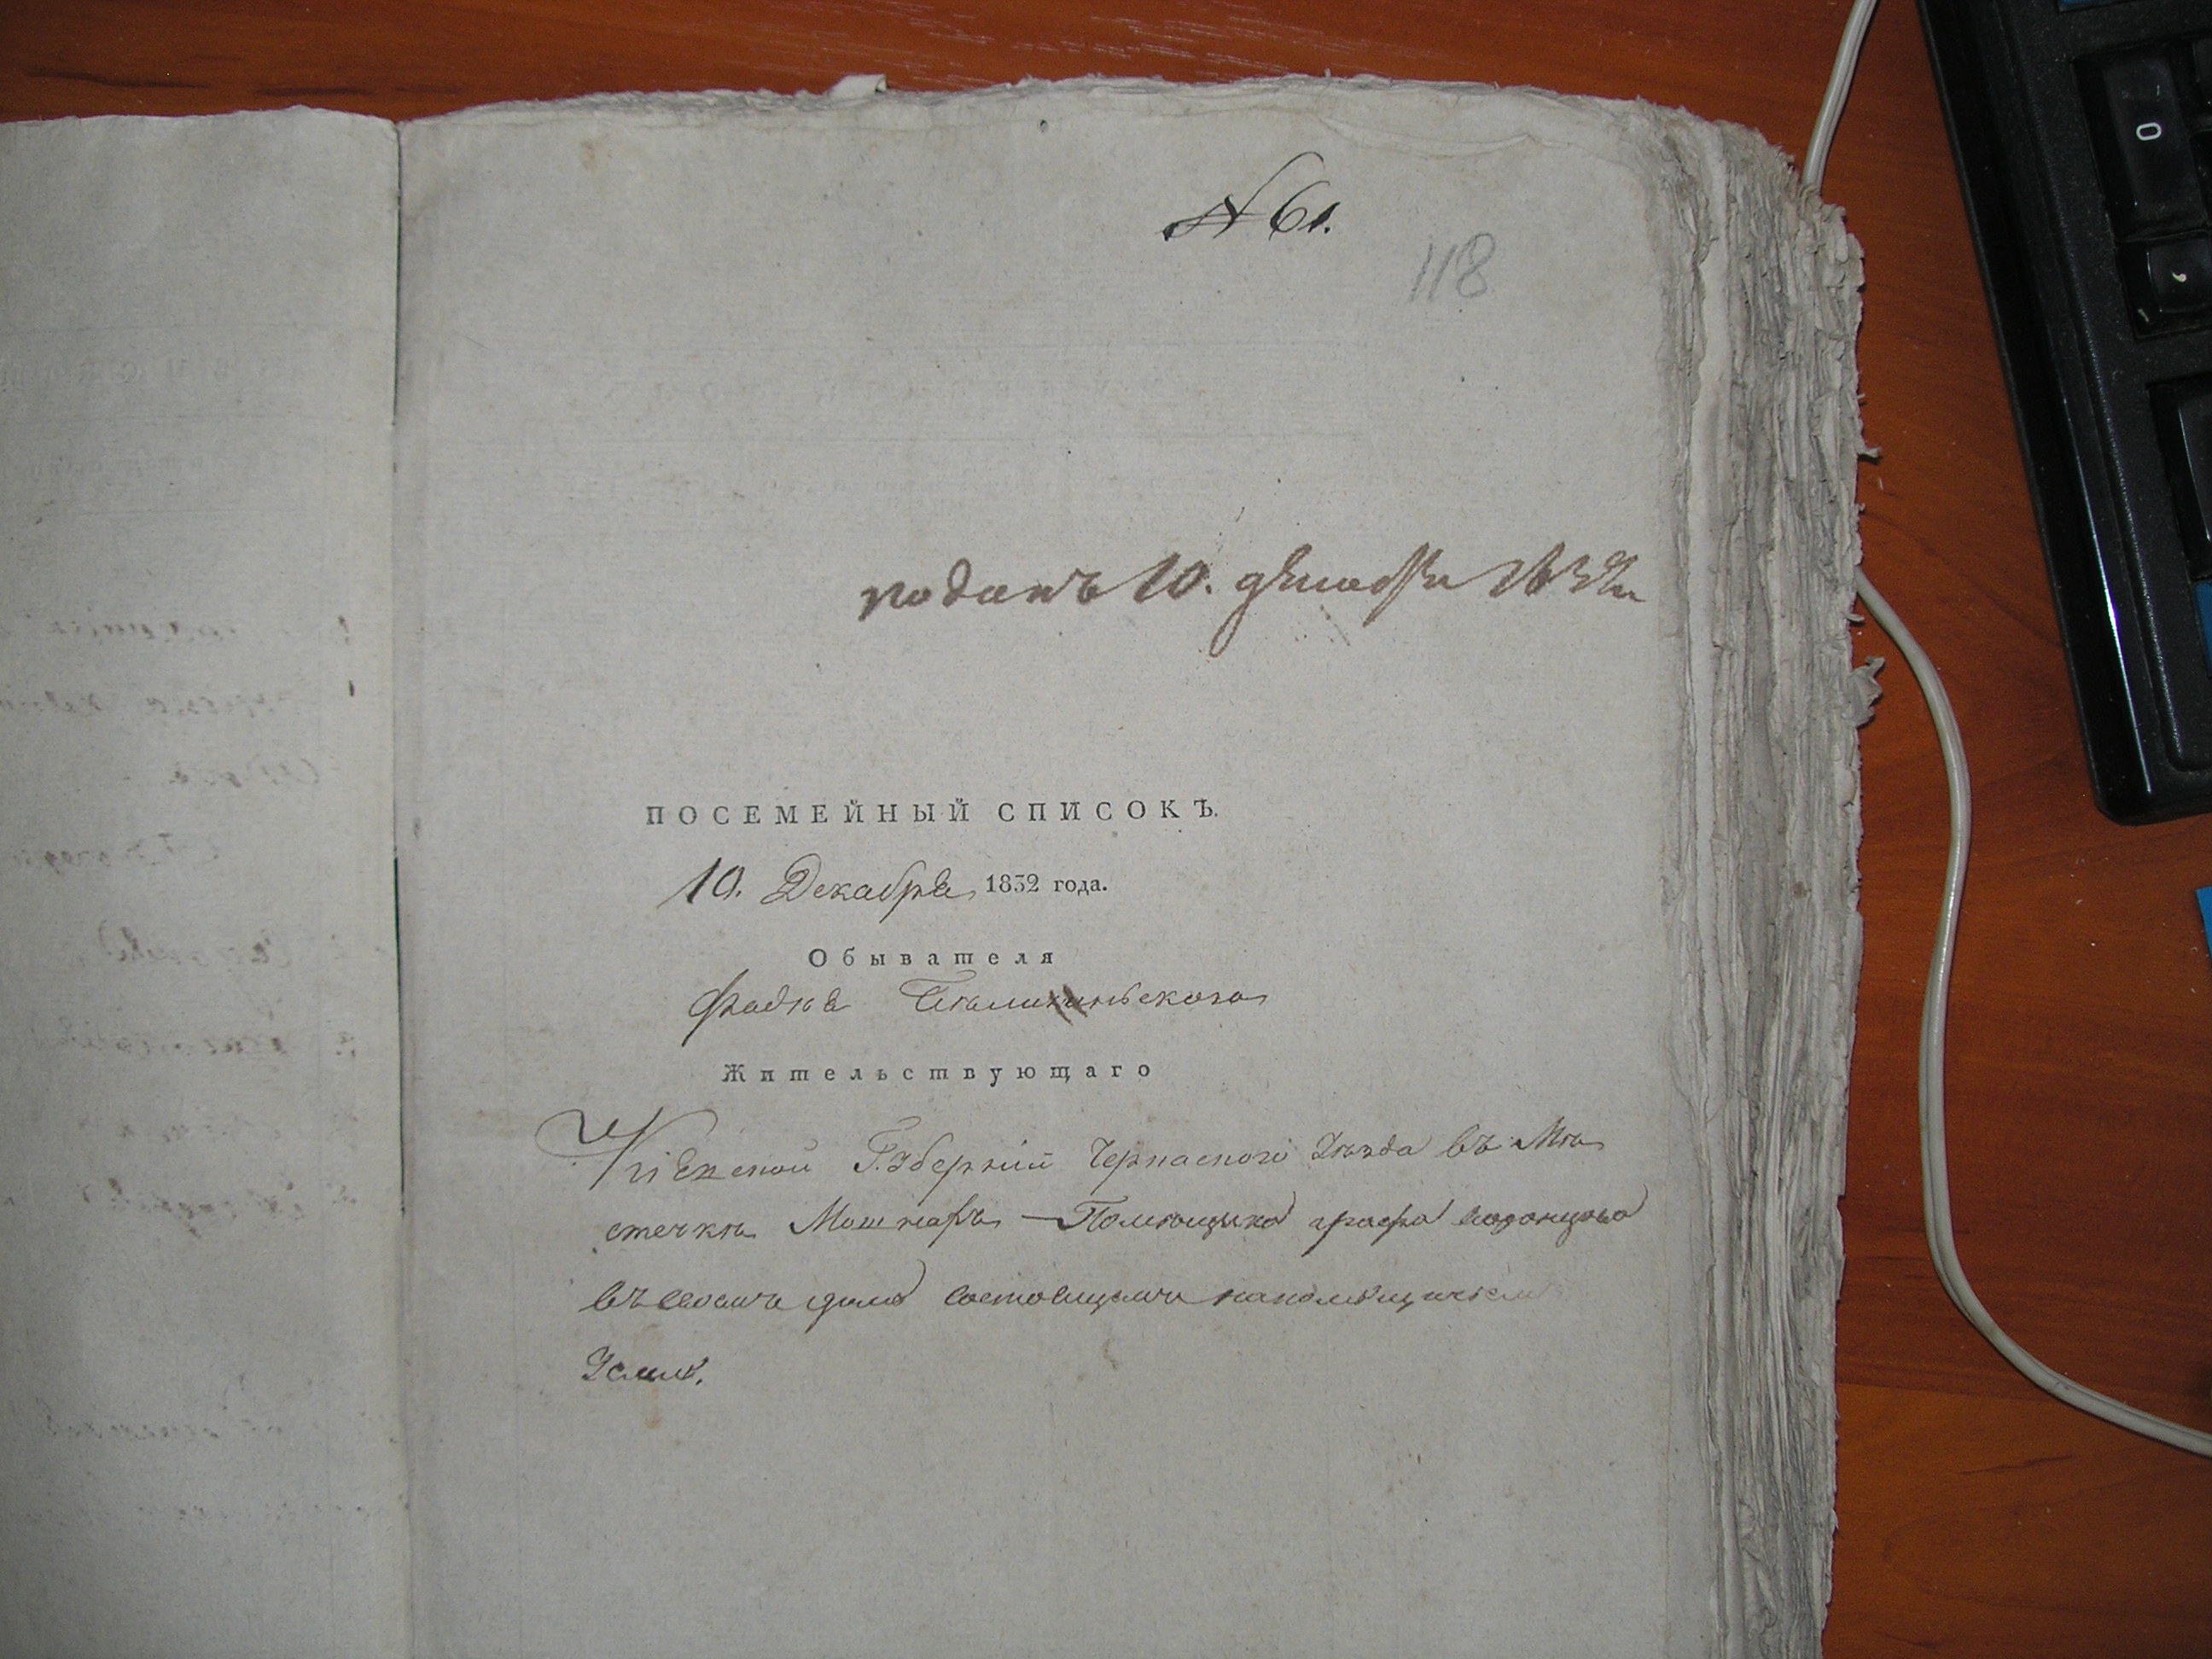 № 61.
118
поданъ 10. декабря 1832 г.
ПОСЕМЕЙНЫЙ СПИСОКЪ.
10. Декабря 1832 года.
Обывателя
Фадея
Жительствующаго
Кіевской Губерніи Черкаского Уезда въ Мѣ
стечкѣ Мошнахъ — Помѣщика графа Воронцова
въ своемъ домѣ состоящемъ на помѣщичьемъ